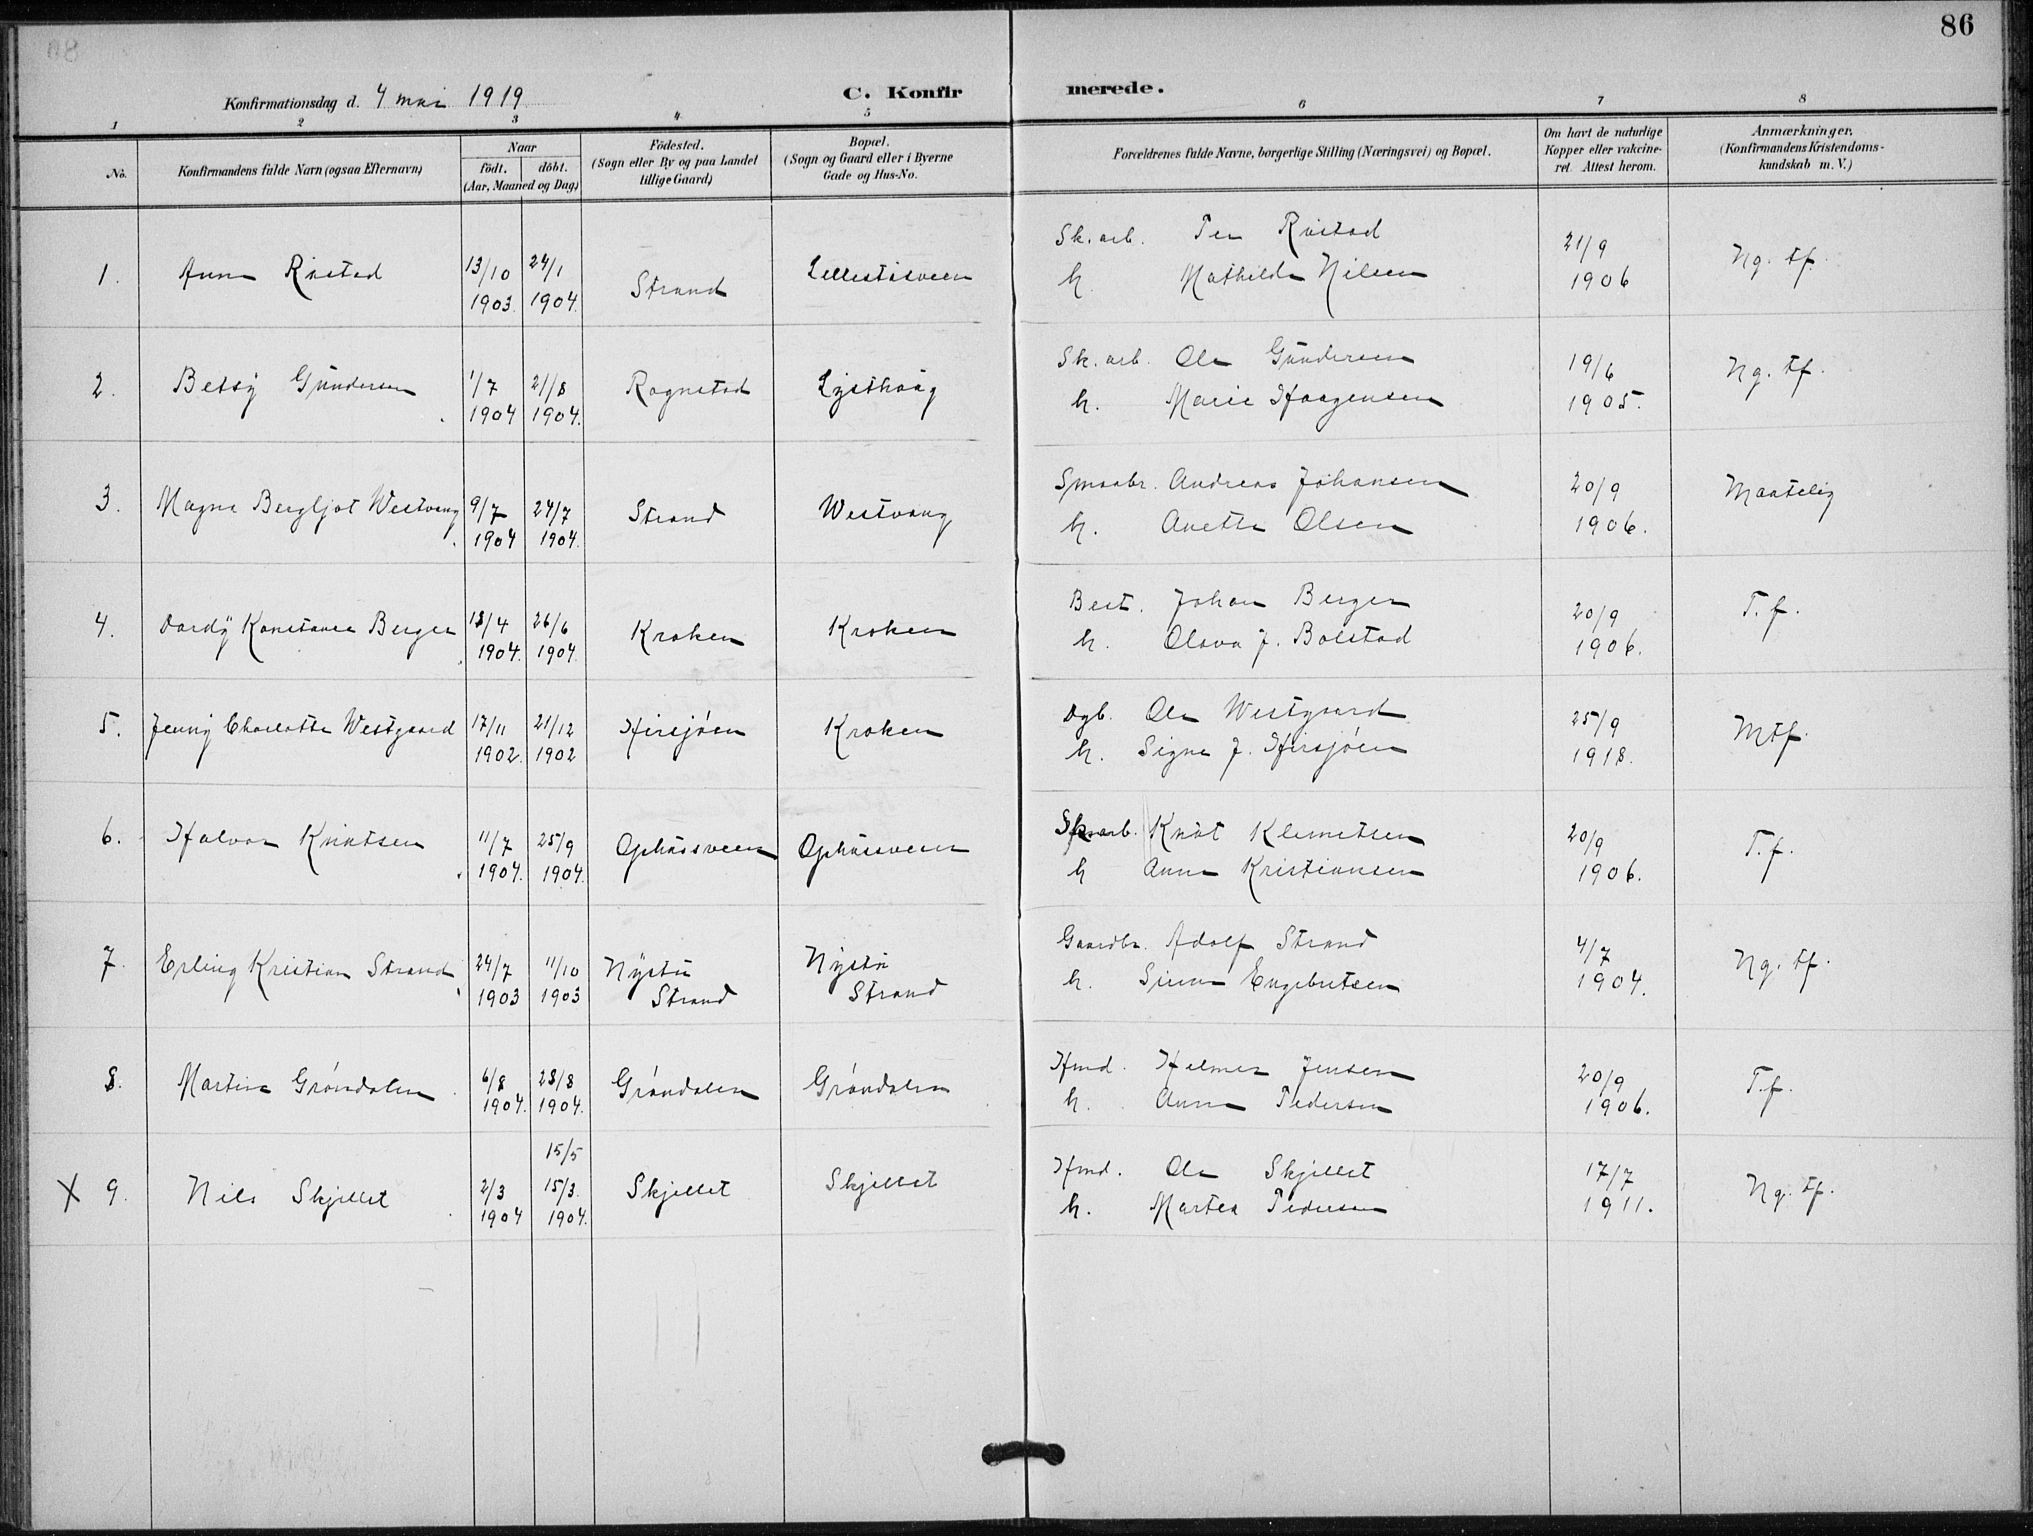 86
Konfirmationsdag d. 4 mai 1919
C. Konfirmerede.
1 2 3 4 5 6 7 8
No.
Konfirmandens fulde Navn (ogsaa Efternavn)
Naar
födt. döbt.
(Aar, Maaned og Dag)
Födested.
(Sogn eller By og paa Landet
tillige Gaard)
Bopæl.
(Sogn og Gaard eller i Byerne
Gade og Hus-No.
Forældrenes fulde Navne, borgerlige Stilling (Næringsvei) og Bopæl.
Om havt de naturlige
Kopper eller vakcine-
ret. Attest herom.
Anmærkninger.
(Konfirmandens Kristendoms-
kundskab m. V.)
1. Anna Rustad 13/10 1903 24/1 1904. Strand Lillestuveen
Sk. arb. Per Rustad
h. Mathilde Nilsen
21/9 1906 Ng. tf.
2. Betsy Gundersen 1/7 1904 21/8 1904. Rognstad Lysthaug
Sk. arb. Ole Gundersen
h. Marie Haagensen
19/6 1905. Ng. tf.
3. Magna Bergljot Westvang 9/7 1904 24/7 1904. Strand Westvang
Smaabr. Andreas Johansen
h. Anette Olsen
20/9 1906. Maatelig
4. Dordy Konstance Berger 18/4 1904. 26/6 1904. Kroken Kroken
Best. Johan Berger
h. Olava J. Bolstad
20/9 1906. T. f.
5. Jenny Charlotte Westgaard 17/11 1902. 21/12 1902 Hirsjøen Kroken
Dgb. Ole Westgaard
h. Signe J. Hirsjøen
25/9 1918. Mtf.
6. Halvor Knutsen 11/7 1904. 25/9 1904. Ophusveen Ophusveen
Sk. arb. Knut Klemetsen
h Anne Kristiansen
20/9 1906. T. f.
7. Erling Kristian Strand 24/7 1903 11/10 1903 Nystu Strand Nystu Strand
Gaardbr. Adolf Strand
h. Engebretsen
4/7 1904. Ng. tf.
8. Martin Grøndalen 6/8 1904. 28/8 1904. Grøndalen Grøndalen
Hmd. Helmer Jensen
h. Anna Pedersen
20/9 1906. T. f.
15/5
X 9. Nils Skjellet 2/3 1904 15/3. 1904. Skjellet Skjellet
Hmd. Ole Skjellet
h. Martea Pedersen
17/7 1911. Ng. tf.